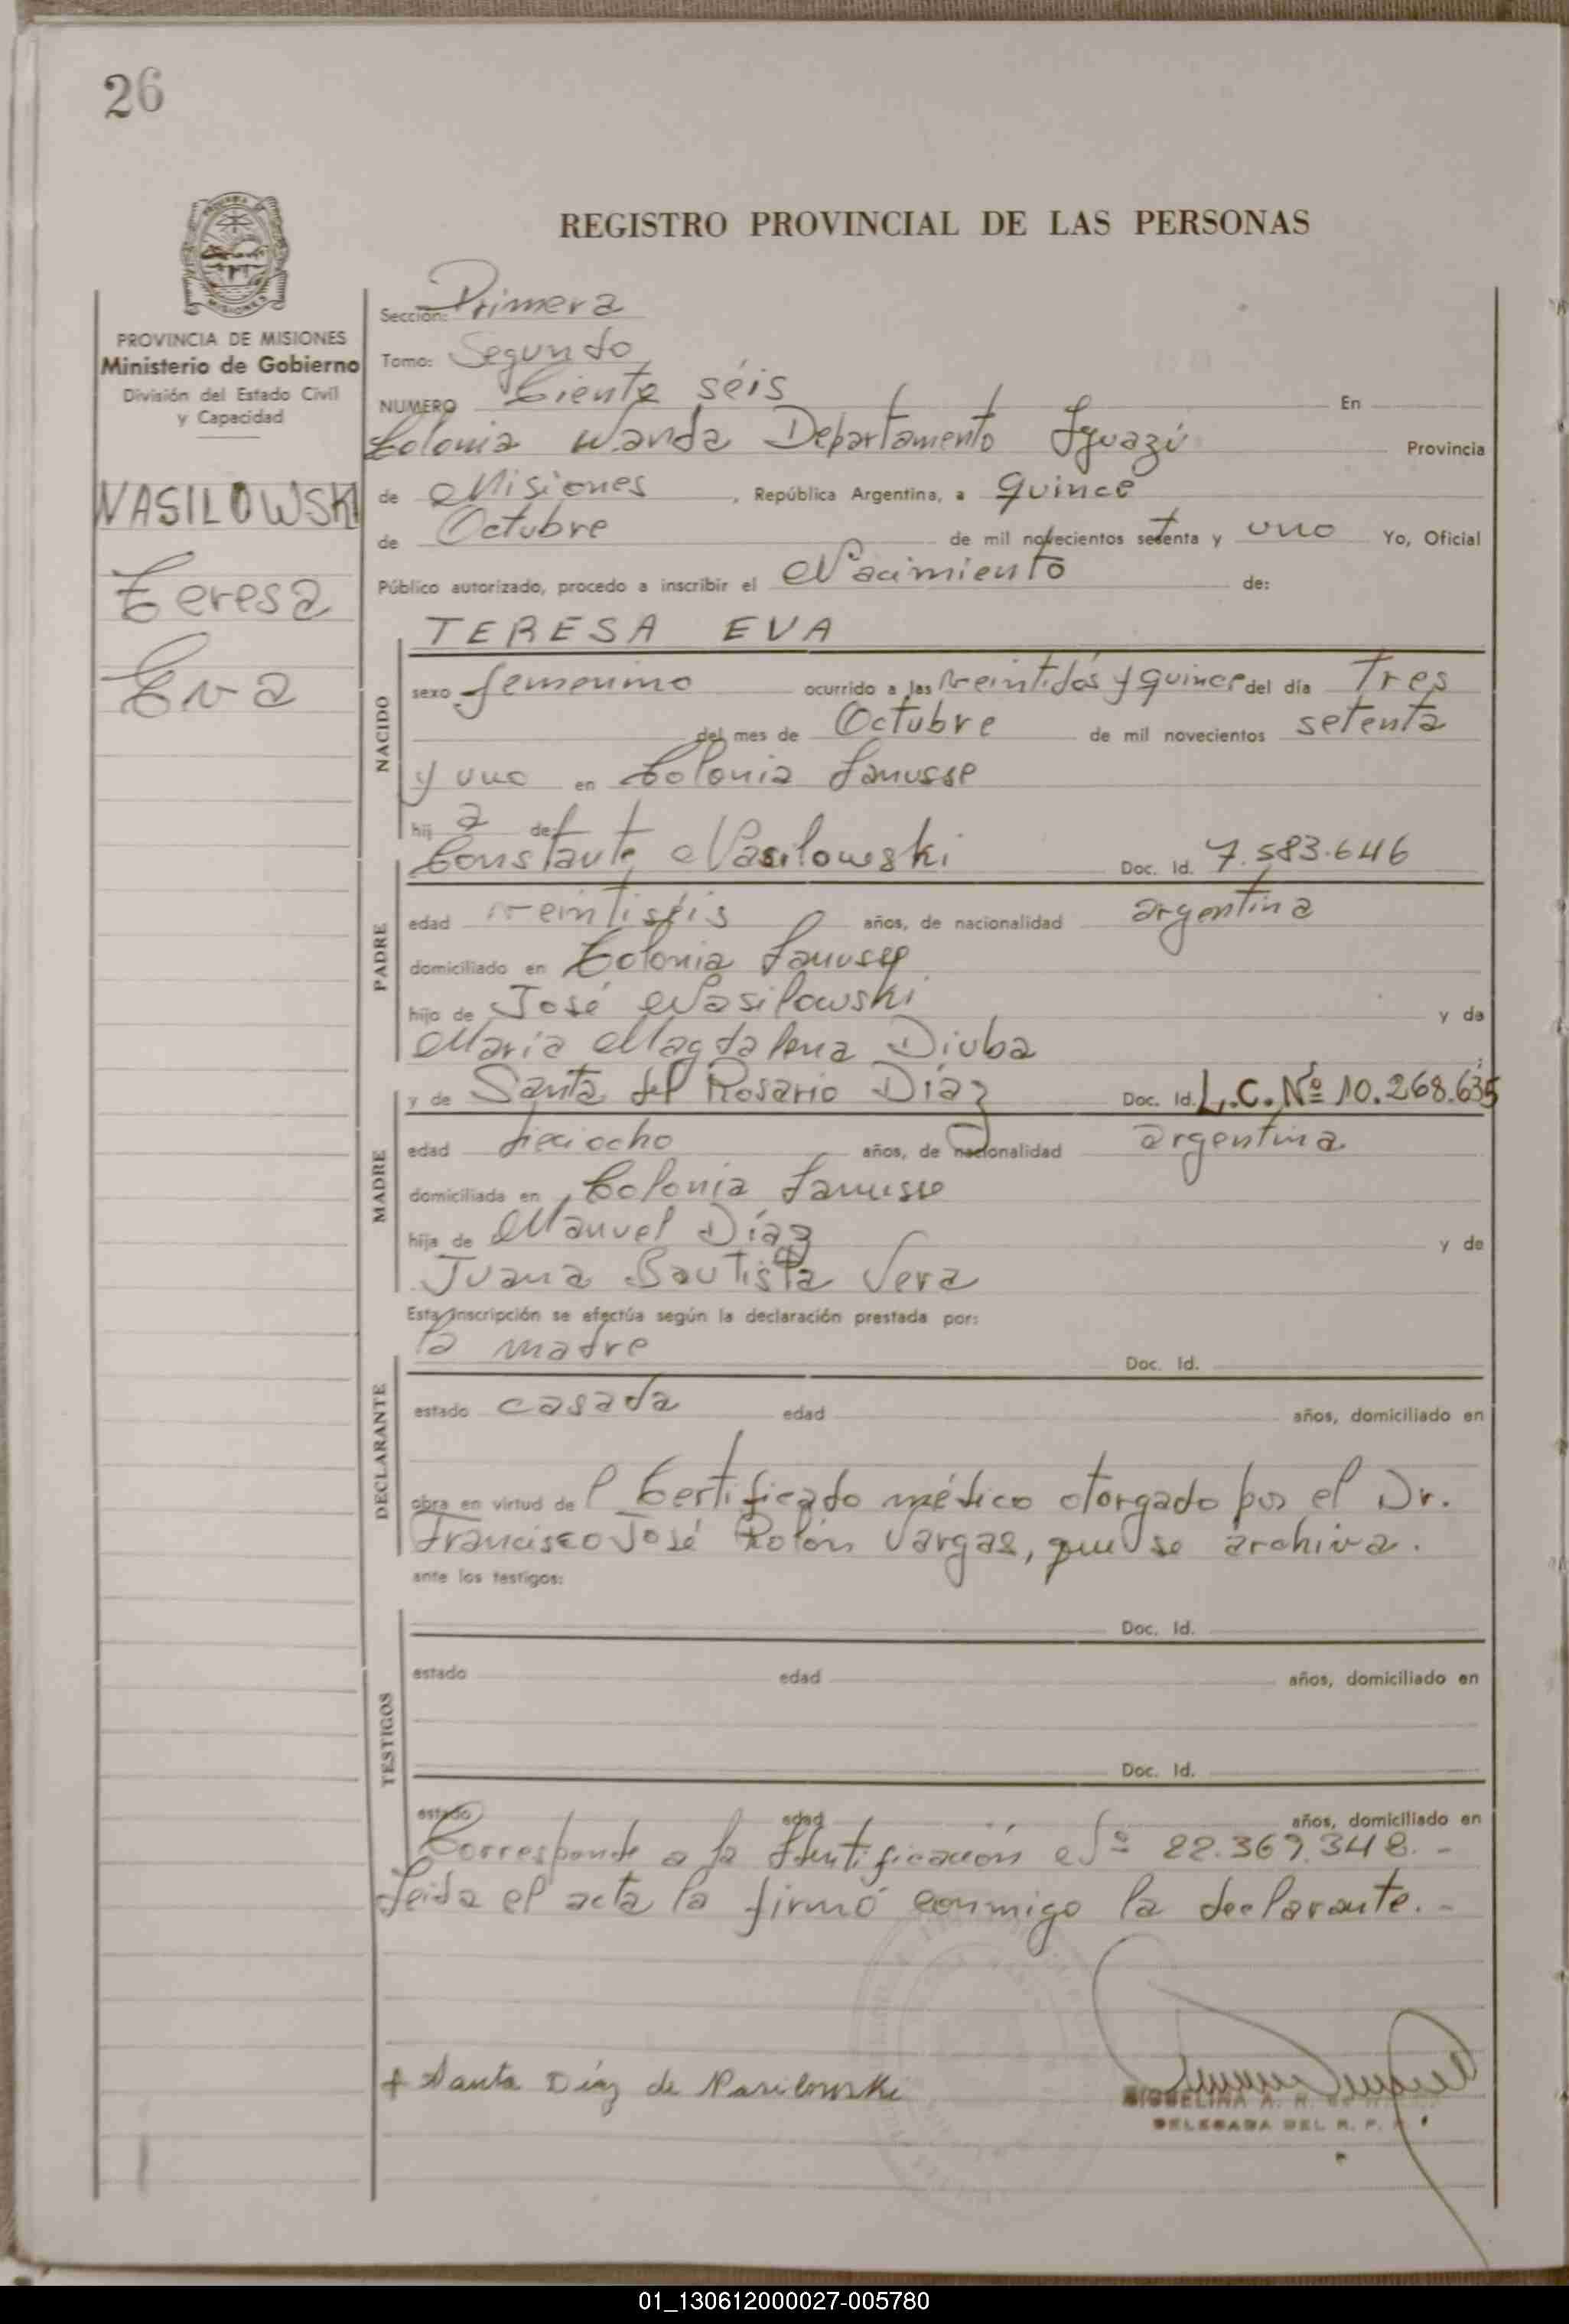 26
REGISTRO PROVINCIAL DE LAS PERSONAS
PROVINCIA DE MISIONES
Ministerio de Gobierno
División del Estado Civil
y Capacidad
WASILOWSKI
Teresa
Eva
Sección: Primera
Tomo: Segundo
NUMERO Ciento séis En
Colonia Wanda Departamento Iguazú Provincia
de Misiones, República Argentina, a quince
de Octubre de mil novecientos setenta y uno Yo, Oficial
Público autorizado, procedo a inscribir el Nacimiento de:
NACIDO
TERESA EVA
sexo femenino ocurrido a las veintidós y quince del día Tres
del mes de Octubre de mil novecientos setenta
y uno en Colonia Lanusse
hij a de
PADRE
Constante Wasilowski Doc. Id. 7.583.646
edad veintiséis años, de nacionalidad argentina
domiciliado en Colonia Lanusse
hijo de José Wasilowski y de
Maria Magdalena Diuba
MADRE
y de Santa del Rosario Díaz Doc. Id. L.C.Nº 10.268.635
edad dieciocho años, de nacionalidad argentina
domiciliada en Colonia Lanusse
hija de Manuel Díaz y de
Juana Bautista Vera
Esta inscripción se efectúa según la declaración prestada por:
DECLARANTE
la madre Doc. Id.
estado casada edad años, domiciliado en
obra en virtud de l Certificado médico otorgado por el Dr.
Francisco José Rolón Vargas, que se archiva.
ante los testigos:
TESTIGOS
Doc. Id.
estado edad años, domiciliado en
Doc. Id.
estado edad años, domiciliado en
Corresponde a la Identificación Nº 22.367.348.-
Leida el acta la firmó conmigo la declarante.-
+ Santa Díaz de Wasilowski
DELEGADA DEL R. P.
01_130612000027-005780